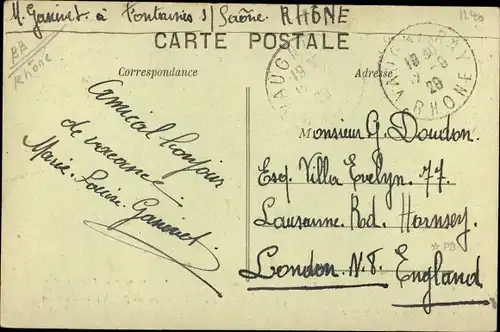 M. Gaminet à Fontaines s/ Saône. RHÔNE
1240
RA
Rhône
CARTE POSTALE
Correspondance
Adresse
VAUGNERAY
18 31
29
RHONE
VAUGN
18
29
Amical bonjour
de vacances.
Marie-Louise Gaminet.
M
Monsieur G. Doudon.
Esq. Villa Evelyn. 77.
Lausanne. Rd. Hornsey.
* PB
London. N.8. England